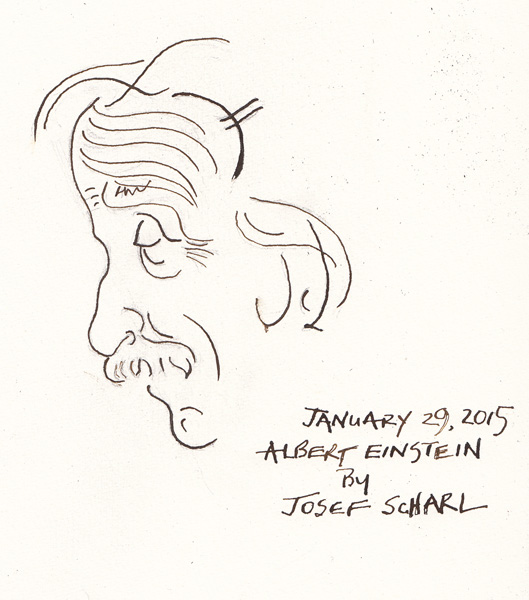 JANUARY 29, 2015
ALBERT EINSTEIN
By
JOSEF SCHARL